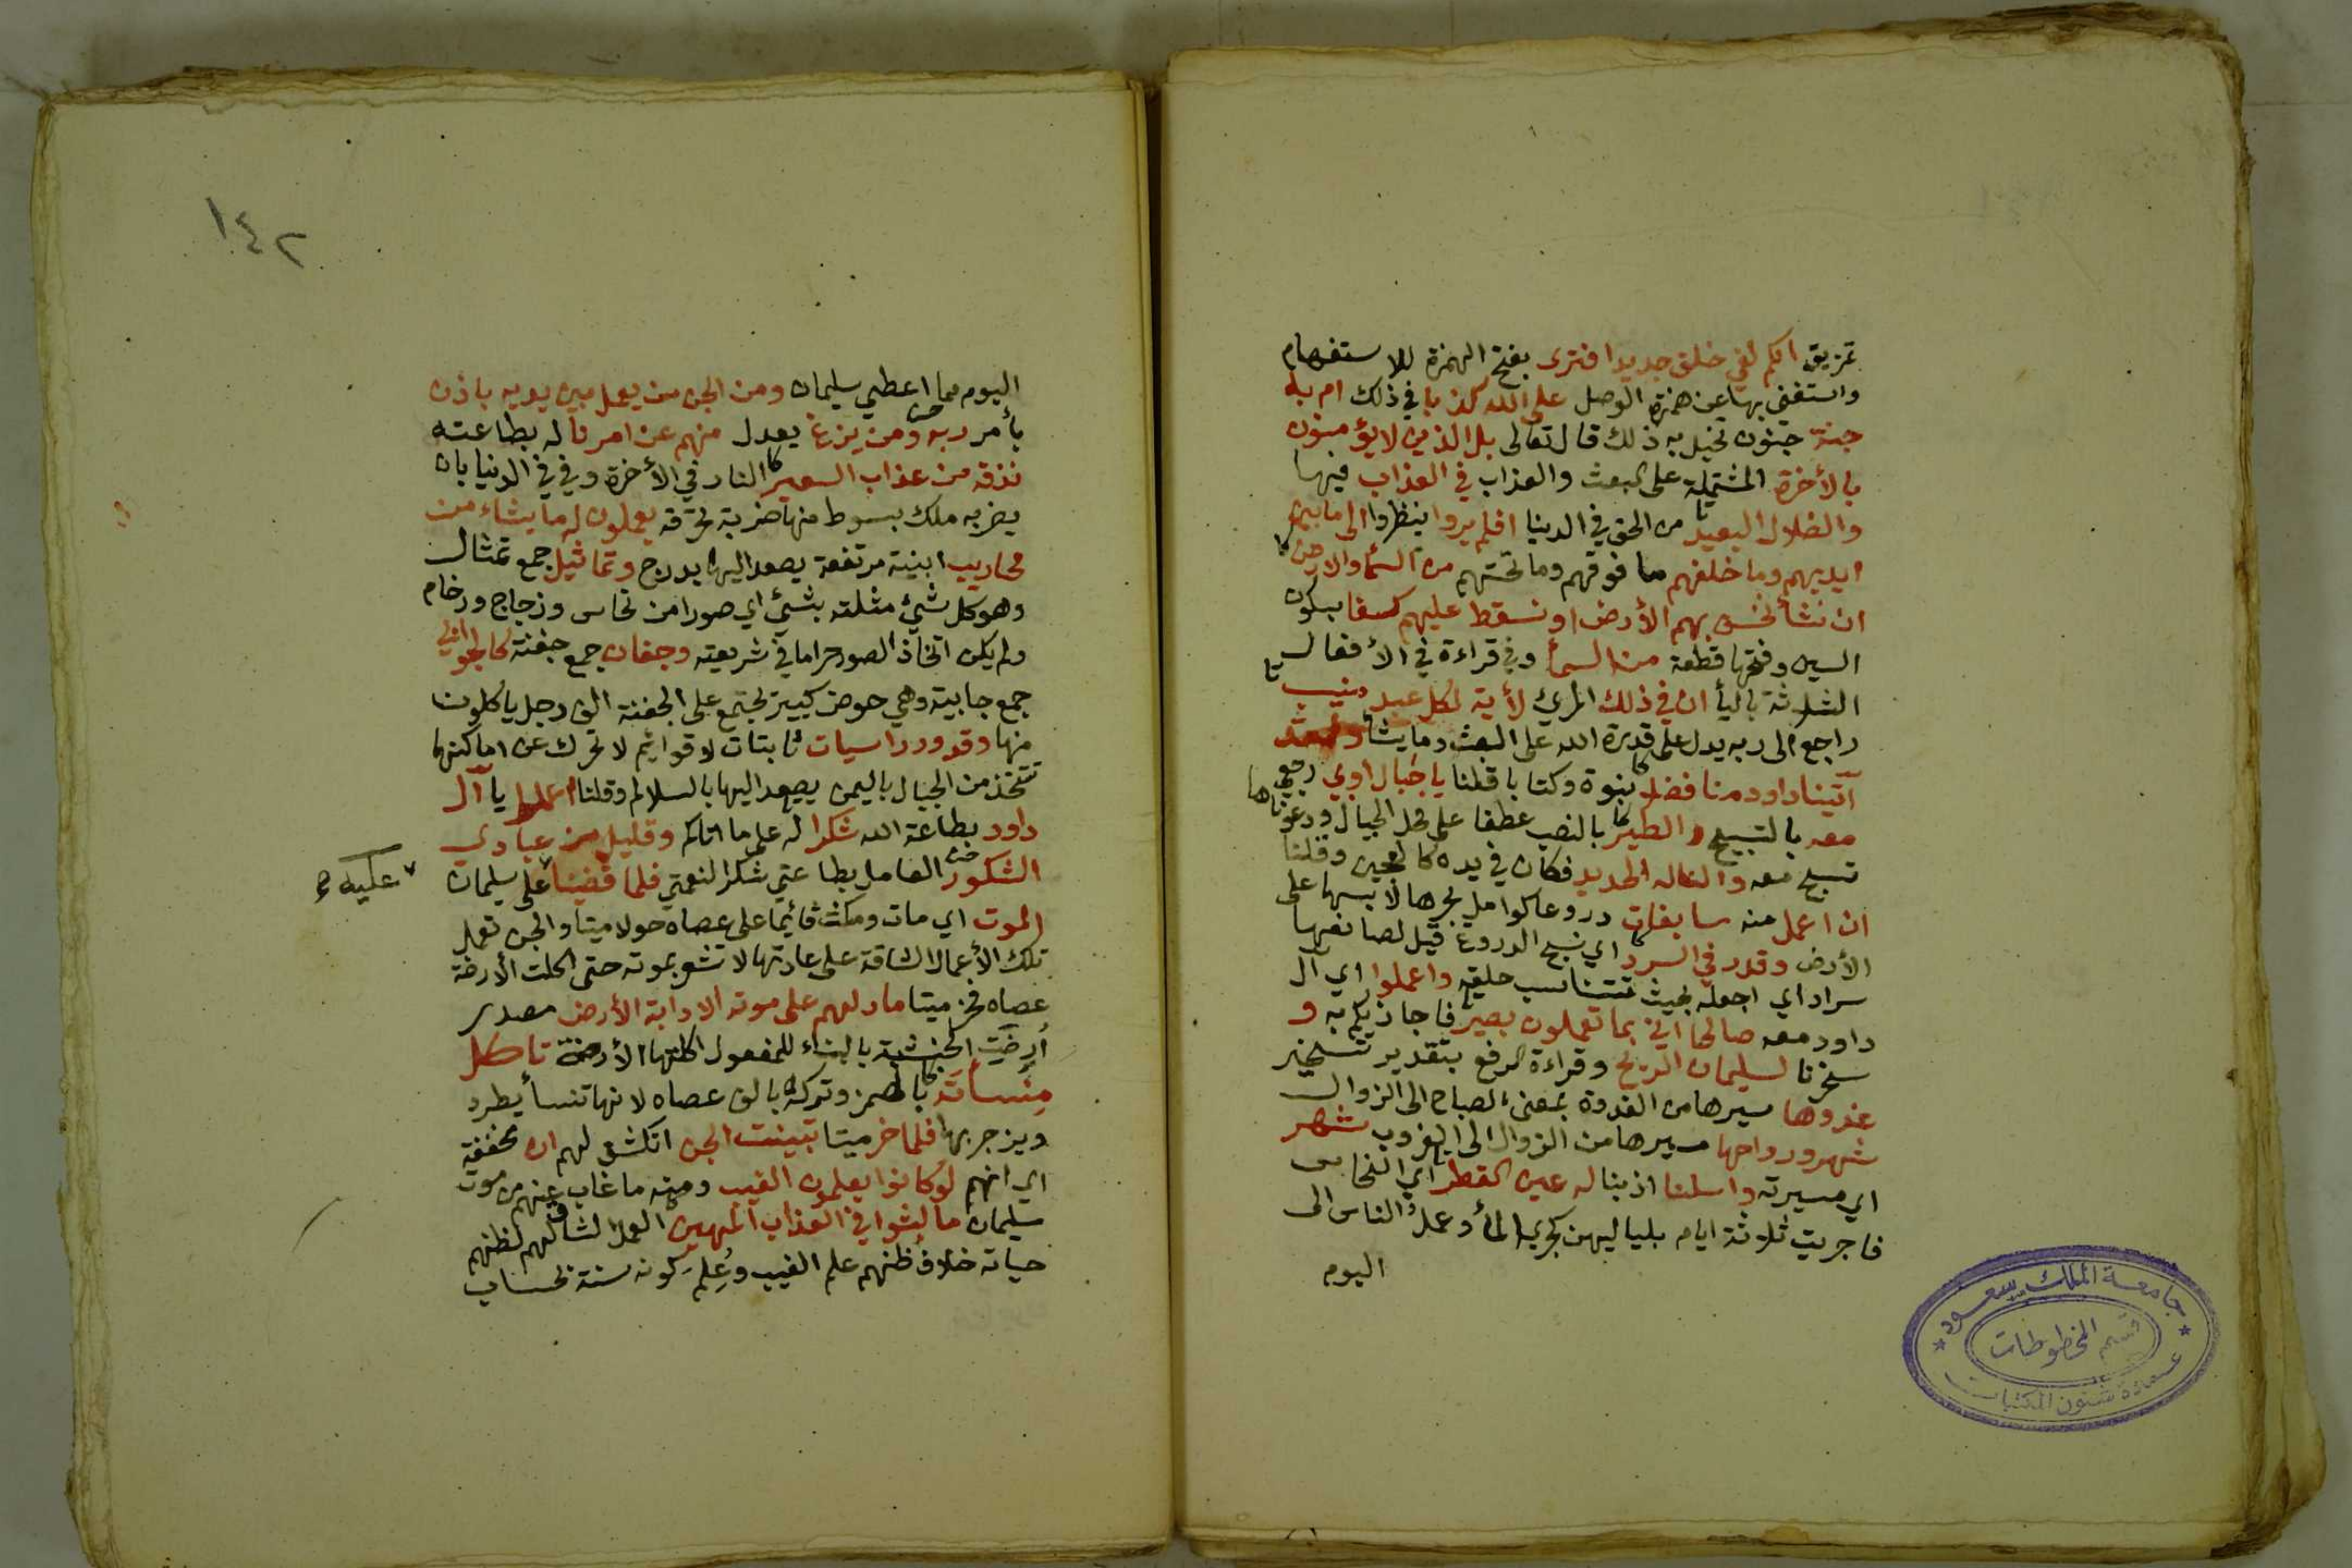 تمزيق انكم لفي خلق جديد افترى بفتح الهمزة للاستفهام
واستغنى بها عن همزة الوصل على الله كذبا في ذلك ام به
جنة جنون تخيل به ذلك قال تعالى بل الذين لا يؤمنون
بالأخرة المشتملة على البعث والعذاب في العذاب فيها
والضلال البعيد من الحق في الدنيا افلم يروا ينظروا الى ما بين
ايديهم وما خلفهم ما فوقهم وما تحتهم من السماء والارض
ان نشأ نخسف بهم الأرض او نسقط عليهم كسفا بسكون
السين وفتحها قطعة من السمأ وفي قراءة في الأفعال
الثلاثة باليأ ان في ذلك المرئ لأية لكل عبد منيب
راجع الى ربه يدل على قدرة الله على البعث وما يشأ ولقد
آتينا داود منا فضلا نبوة وكتابا قلنا يا جبال اوبي رجعي
معه بالتسبيح والطير بالنصب عطفا على محل الجبال ودعوناها
تسبح معه والنا له الحديد فكان في يده كالعجين وقلنا
ان اعمل منه سابغات دروعا كوامل يجرها لابسها على
الأرض وقدر في السرد اي نسج الدروع قيل لصانعها
سراد اي اجعله بحيث تتناسب حلقه واعملوا اي آل
داود معه صالحا اني بما تعملون بصير فاجازيكم به و
سخرنا لسليمان الريح وقراءة الرفع بتقدير تسخير
غدوها سيرها من الغدوة بمعنى الصباح الى الزوال
شهر ورواحها سيرها من الزوال الى الغروب شهر
اي مسيرته واسلنا اذبنا له عين القطر اي النحاس
فاجريت ثلاثة ايام بلياليهن كجري المأ وعمل الناس الى
اليوم
جامعة الملك سعود
قسم المخطوطات
عمادة شئون المكتبات
١٤٢
اليوم مما اعطي سليمان ومن الجن من يعمل بين يديه باذن
بأمر ربه ومن يزغ يعدل منهم عن امرنا له بطاعته
نذقه من عذاب السعير النار في الأخرة وفي في الدنيا بان
يضربه ملك بسوط منها ضربة تحرقه يعملون له ما يشاء من
محاريب ابنية مرتفعة يصعد اليها بدرج وتماثيل جمع تمثال
وهو كل شيئ مثلته بشيئ اي صورا من نحاس وزجاج ورخام
ولم يكن اتخاذ الصور حراما في شريعته وجفان جمع جفنة كالجوابي
جمع جابية وهي حوض كبير يجتمع على الجفنة الف رجل ياكلون
منها وقدور راسيات ثابتات لا قوائم لا تحرك عن اماكنها
تتخذ من الجبال باليمن يصعد اليها بالسلالم وقلنا اعملوا يا آل
داود بطاعة الله شكرا له على ما اتاكم وقليل من عبادي
الشكور العامل بطاعتي شكرا لنعمتي فلما قضينا على سليمان
عليه
الموت اي مات ومكث قأيما على عصاه حولا ميتا والجن تعمل
تلك الأعمال الشاقة على عادتها لا تشعر بموته حتى اكلت الأرضة
عصاه فخر ميتا ما دلهم على موته الا دابة الأرض مصدر
أرضت الخشبة بالبناء للمفعول اكلتها الأرضة تاكل
منسأته بالهمز وتركه بالف عصاه لانها تنسأ يطرد
ويزجر بها فلما خر ميتا تبينت الجن انكشف لهم ان مخففة
اي انهم لو كانوا يعلمون الغيب ومنه ما غاب عنهم من موت
سليمان ما لبثوا في العذاب المهين العمل الشاق لهم لظنهم
حياته خلاف ظنهم علم الغيب وعلم كونه سنة بحساب